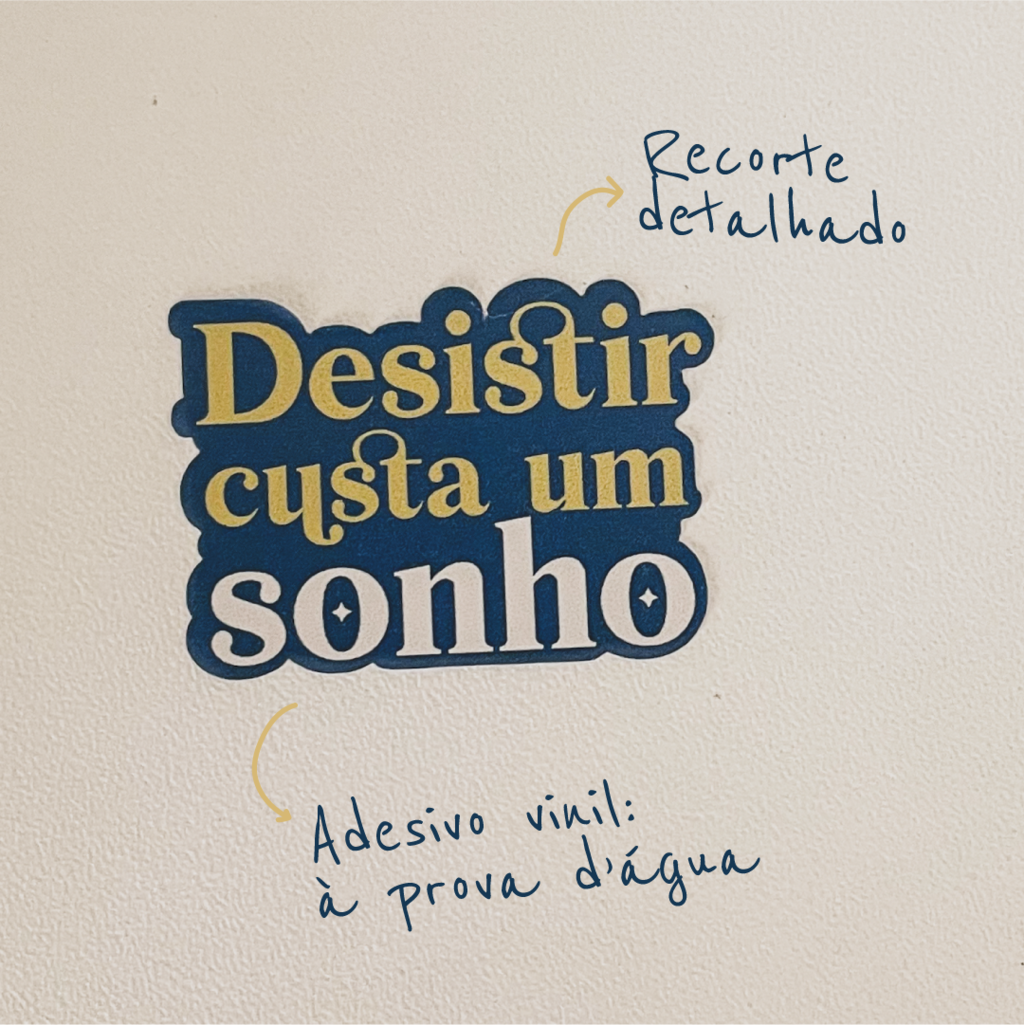 Recorte
detalhado
Desistir
custa um
sonho
Adesivo vinil:
à prova d'água